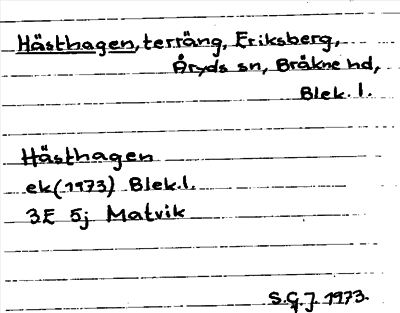 Hästhagen, terräng, Eriksberg,
Åryds sn, Bräkne hd,
Blek. l.
Hästhagen
ek (1973) Blek. l.
3E 5j Matvik
S.G.J. 1973.